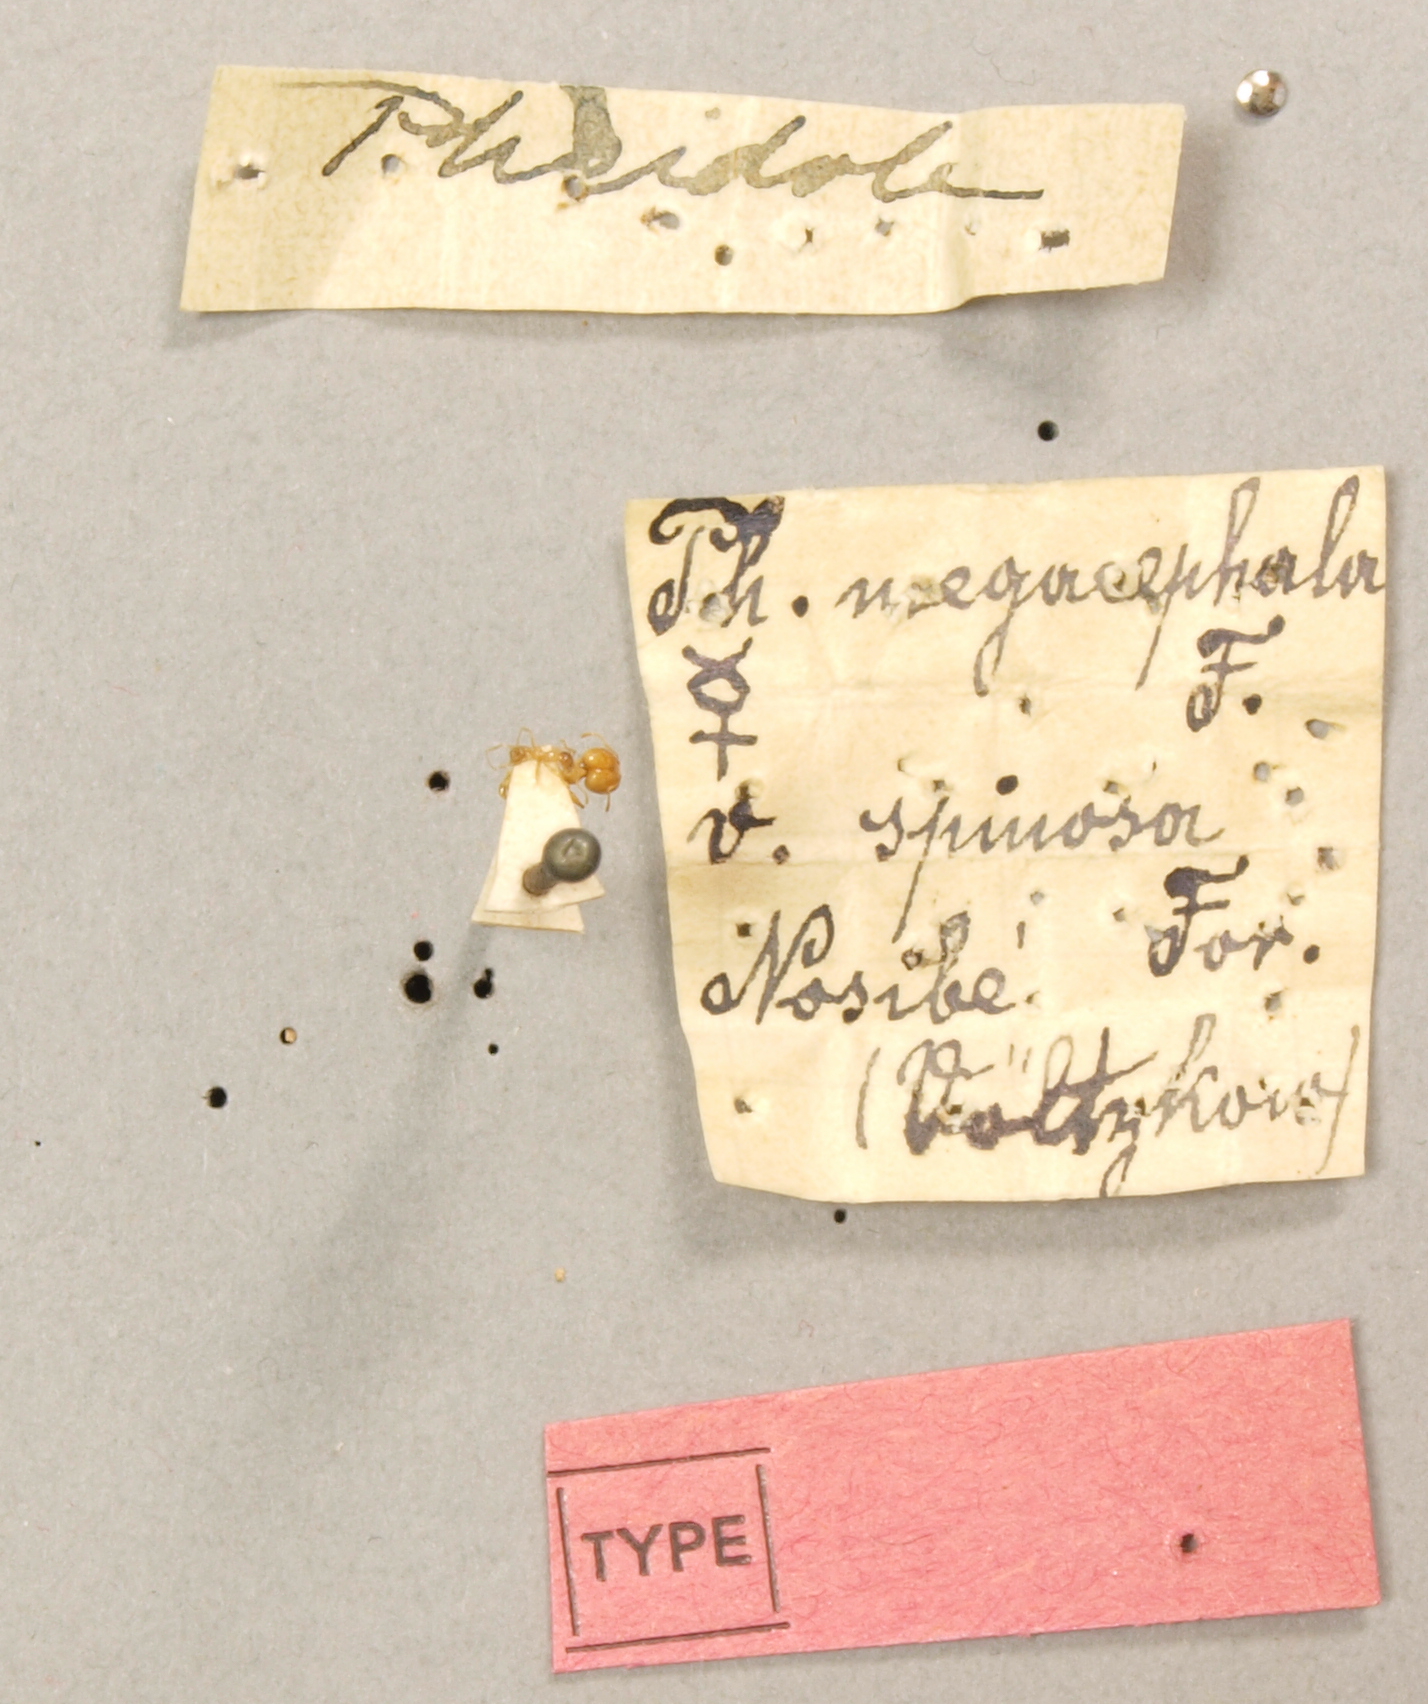 Pheidole
Ph. megacephala
☿ F.
v. spinosa
For.
Nosibé
(Völtzkow)
TYPE